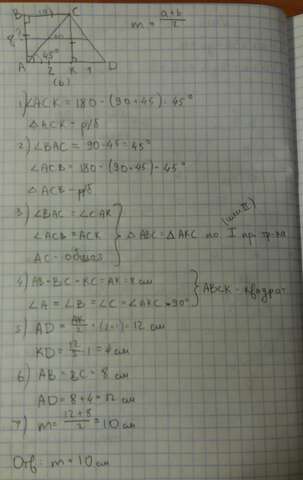 B (a) C
m = a+b/2
8?
m
45°
A 2 K 1 D
(b)
1) ∠ACK = 180 - (90+45) = 45°
△ACK - р/б
2) ∠BAC = 90-45 = 45°
∠ACB = 180 - (90+45) = 45°
△ACB - р/б
3) ∠BAC = ∠CAK
∠ACB = ∠ACK
AC - общая
△ABC = △AKC по I пр. тр-ка
(или II)
4) AB=BC=KC=AK=8 см
∠A = ∠B = ∠C = ∠AKC = 90°
ABCK - квадрат
5) AD = AK/2 · (2+1) = 12 см
KD = 12/3 · 1 = 4 см
6) AB = BC = 8 см
AD = 8+4 = 12 см
7) m = 12+8/2 = 10 см
Отв: m = 10 см